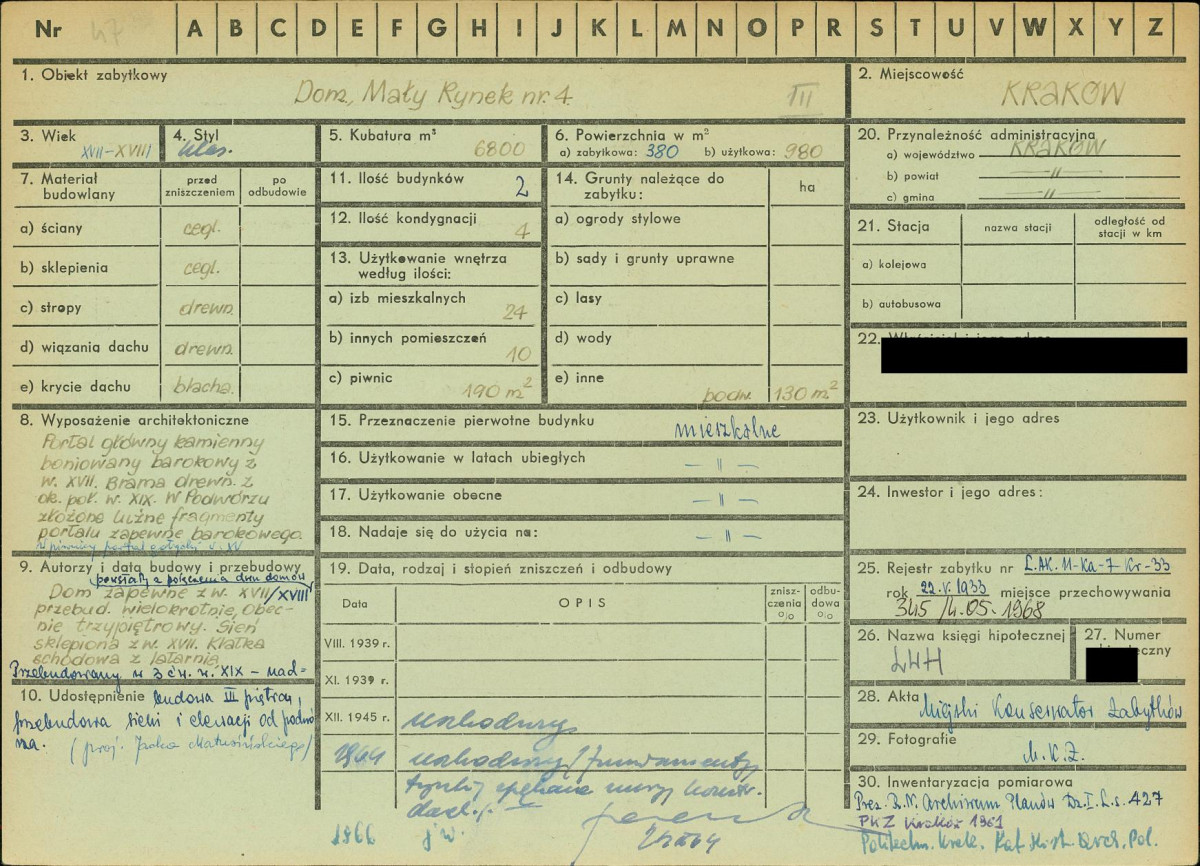 Nr 47 A B C D E F G H I J K L M N O P R S T U V W X Y Z
1. Obiekt zabytkowy
Dom, Mały Rynek nr. 4. III
2. Miejscowość
KRAKÓW
3. Wiek
XVII-XVIII
4. Styl
klas.
5. Kubatura m³
6800
6. Powierzchnia w m²
a) zabytkowa: 380 b) użytkowa: 980
20. Przynależność administracyjna
a) województwo KRAKÓW
b) powiat —"—
c) gmina —"—
7. Materiał budowlany
przed zniszczeniem
po odbudowie
a) ściany cegl.
b) sklepienia cegl.
c) stropy drewn.
d) wiązania dachu drewn.
e) krycie dachu blacha.
11. Ilość budynków
2
12. Ilość kondygnacji
4
13. Użytkowanie wnętrza
według ilości:
a) izb mieszkalnych
24
b) innych pomieszczeń
10
c) piwnic
190 m²
14. Grunty należące do
zabytku:
ha
a) ogrody stylowe
b) sady i grunty uprawne
c) lasy
d) wody
e) inne
podw. 130 m²
21. Stacja
nazwa stacji
odległość od
stacji w km
a) kolejowa
b) autobusowa
22.
8. Wyposażenie architektoniczne
Portal główny kamienny
boniowany barokowy z
w. XVII. Brama drewn. z
ok. poł. w. XIX. W Podwórzu
złożone luźne fragmenty
portalu zapewne barokowego.
w piwnicy portal gotycki w. XV
15. Przeznaczenie pierwotne budynku
mieszkalne
16. Użytkowanie w latach ubiegłych
—"—
17. Użytkowanie obecne
—"—
18. Nadaje się do użycia na:
—"—
23. Użytkownik i jego adres
24. Inwestor i jego adres:
9. Autorzy i data budowy i przebudowy
powstały z połączenia dwu domów
Dom zapewne z w. XVII/XVIII
przebud. wielokrotnie, Obec-
nie trzypiętrowy. Sień
sklepiona z w. XVII. Klatka
schodowa z latarnią
Przebudowany w 3 ćw. w. XIX – nad-
10. Udostępnienie
budowa III piętra,
przebudowa sieni i elewacji od podwó-
rza. (proj. Matusińskiego)
19. Data, rodzaj i stopień zniszczeń i odbudowy
Data
OPIS
znisz-
czenia
%
odbu-
dowa
%
VIII. 1939 r.
XI. 1939 r.
XII. 1945 r.
uszkodzony
1964 uszkodzony/fundamenty,
tynki, spękania mury, konstr.
dach./.
1966 j. w.
25. Rejestr zabytku nr L.AK.11-Ka-7 Kr-33
rok 22.V.1933 miejsce przechowywania
345 /4.05.1968
26. Nazwa księgi hipotecznej
LWH
27. Numer
28. Akta
Miejski Konserwator Zabytków
29. Fotografie
M.K.Z.
30. Inwentaryzacja pomiarowa
Prez. R.N. Archiwum Planów Dz. I. L.s. 427
PKZ Kraków 1961
Politechn. Krak. Kat. Hist. Arch. Pol.